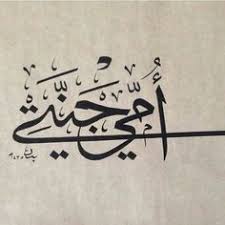 أُمِّي جَنَّتِي